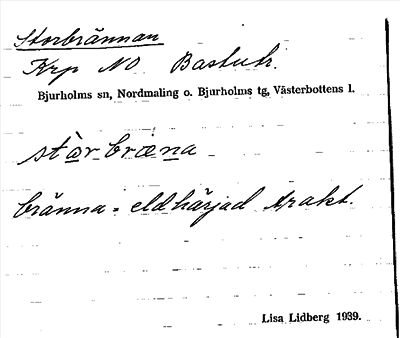 Storbrännan
Krp NO Bastutr.
Bjurholms sn, Nordmaling o. Bjurholms tg, Västerbottens l.
stàrbræna
bränna = eldhärjad trakt.
Lisa Lidberg 1939.